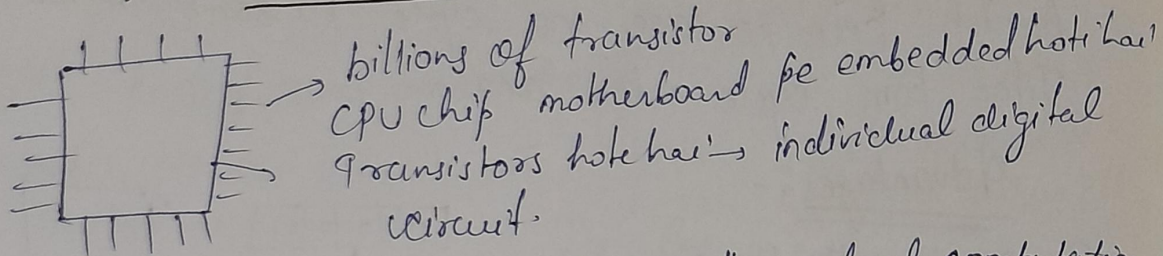 billions of transistor
CPU chip motherboard pe embedded hoti hai
Transistors hote hai → individual digital
circuit.